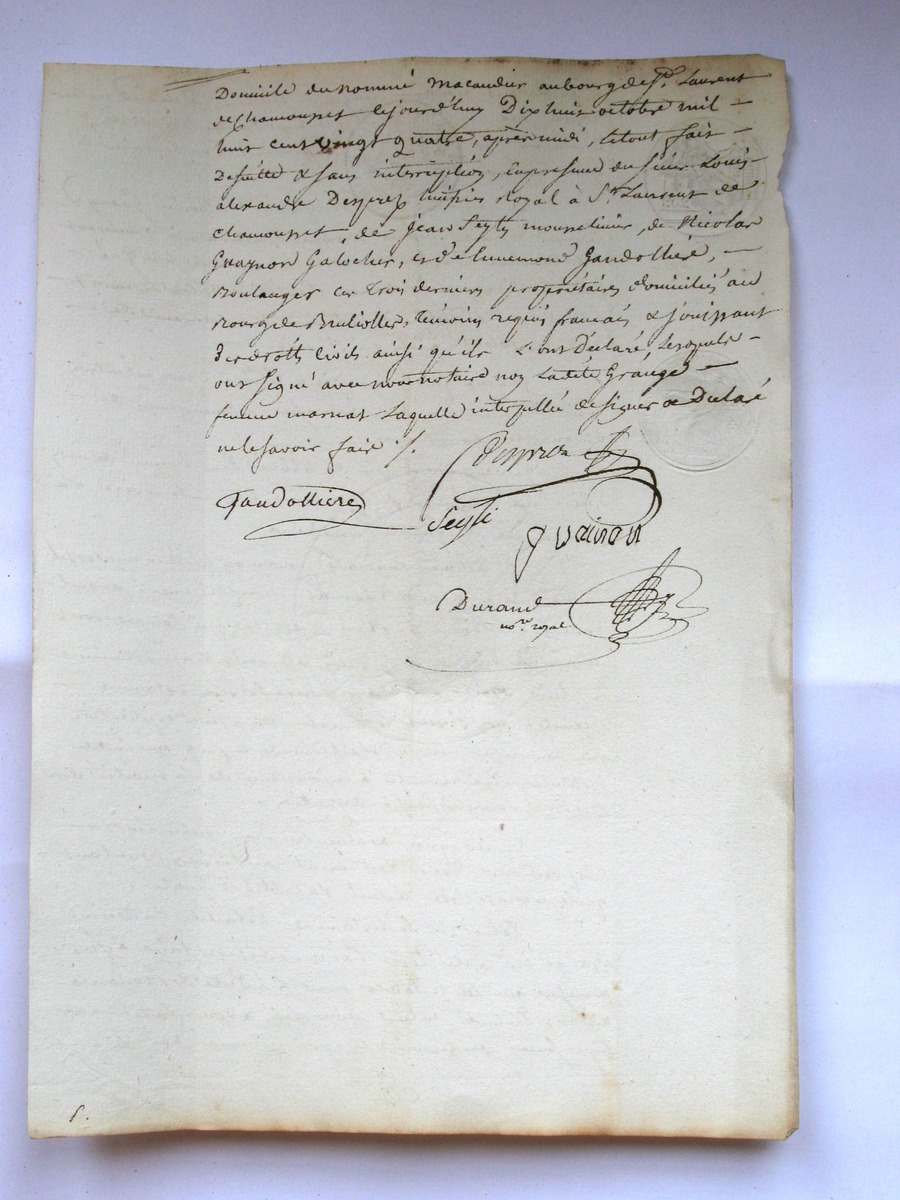 Domicile du nommé Macaudier au bourg de St. Laurent
de Chamousset le jourd'huy Dixhuit octobre mil
huit cent vingt quatre, après midi, le tout fait
De suitte & sans interruption, En présence du sieur Louis
alexandre Desprez huissier Royal à St. Laurent de
Chamousset, de Jean Seyty mousselinier, de Nicolas
Guaynon Galochier, et d'Ennemond Gandollière,
Boulanger ces trois derniers propriétaires domiciliés au
Bourg de Brullioles, témoins requis français & jouissant
des droits Civils ainsi qu'ils L'ont Déclaré, Lesquels
ont signé avec nous notaire non Ladite Grange
femme marnat Laquelle interpellée de signer a Déclaré
ne le savoir faire ./.
Desprez
Gandolliere
Seyti
Durand
nore. royal